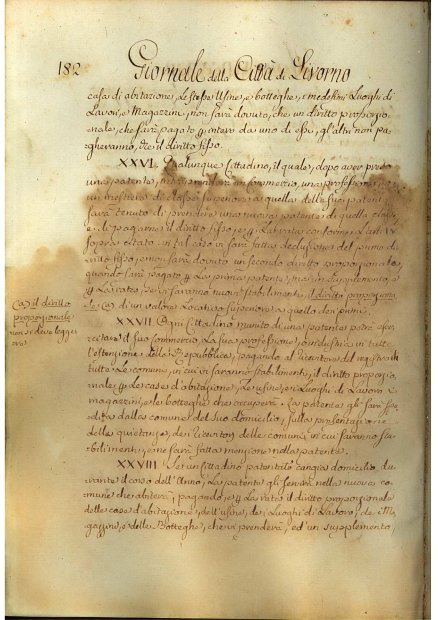 182 Giornale della Città di Livorno
casa di abitazione, le stesse Usine, e botteghe, i medesimi Luoghi di
Lavoro, e Magazzini, non sarà dovuto, che un diritto proporzio-
nale, che sarà pagato per intero da uno di essi, gl'altri non pa-
gheranno, che il diritto fisso.
XXVI. Qualunque Cittadino, il quale, dopo aver preso
una patente, un Commercio, una professione,
un mestiere di classe superiore a quella della sua patente,
sarà tenuto di prendere una nuova patente di quella classe,
e di pagarne il diritto fisso, per La rata conforme L'art. IV
sopra citato. in tal caso vi sarà fatta deduzione del primo di-
ritto fisso, e non sarà dovuto un secondo diritto proporzionale
quando sarà pagato per La prima patente, ma in supplemento, e
per La rata, se vi saranno nuovi stabilimenti, il diritto proporziona-
le di un valore Locativo superiore a quello dei primi.
(a) il diritto
proporzionale
non si deve legger
XXVII. Ogni Cittadino munito di una patente potrà eser-
citare il suo Commercio, La sua professione, o industria in tutta
l'estensione della Repubblica, pagando al Ricevitore del registro in
tutte Le comuni, in cui vi saranno stabilimenti, il diritto proporzio-
nale per Le case d'abitazione, Le usine, e i Luoghi di Lavoro
magazzini, e le botteghe che occuperà. La patente gli sarà spe-
dita dalla comune del suo domicilio, sulla presentazione
delle quietanze, dei ricevitori delle comuni in cui saranno sta-
bilimenti, e ne sarà fatta menzione nella patente.
XXVIII. Se un Cittadino patentato cangia domicilio, du-
rante il corso dell'Anno, La patente gli servirà nella nuova co-
mune che abiterà, pagando, per La rata il diritto proporzionale
delle case d'abitazione, dell'usine, dei Luoghi di Lavoro, de i Ma-
gazzini, e delle Botteghe, che vi prenderà, ed un supplemento,